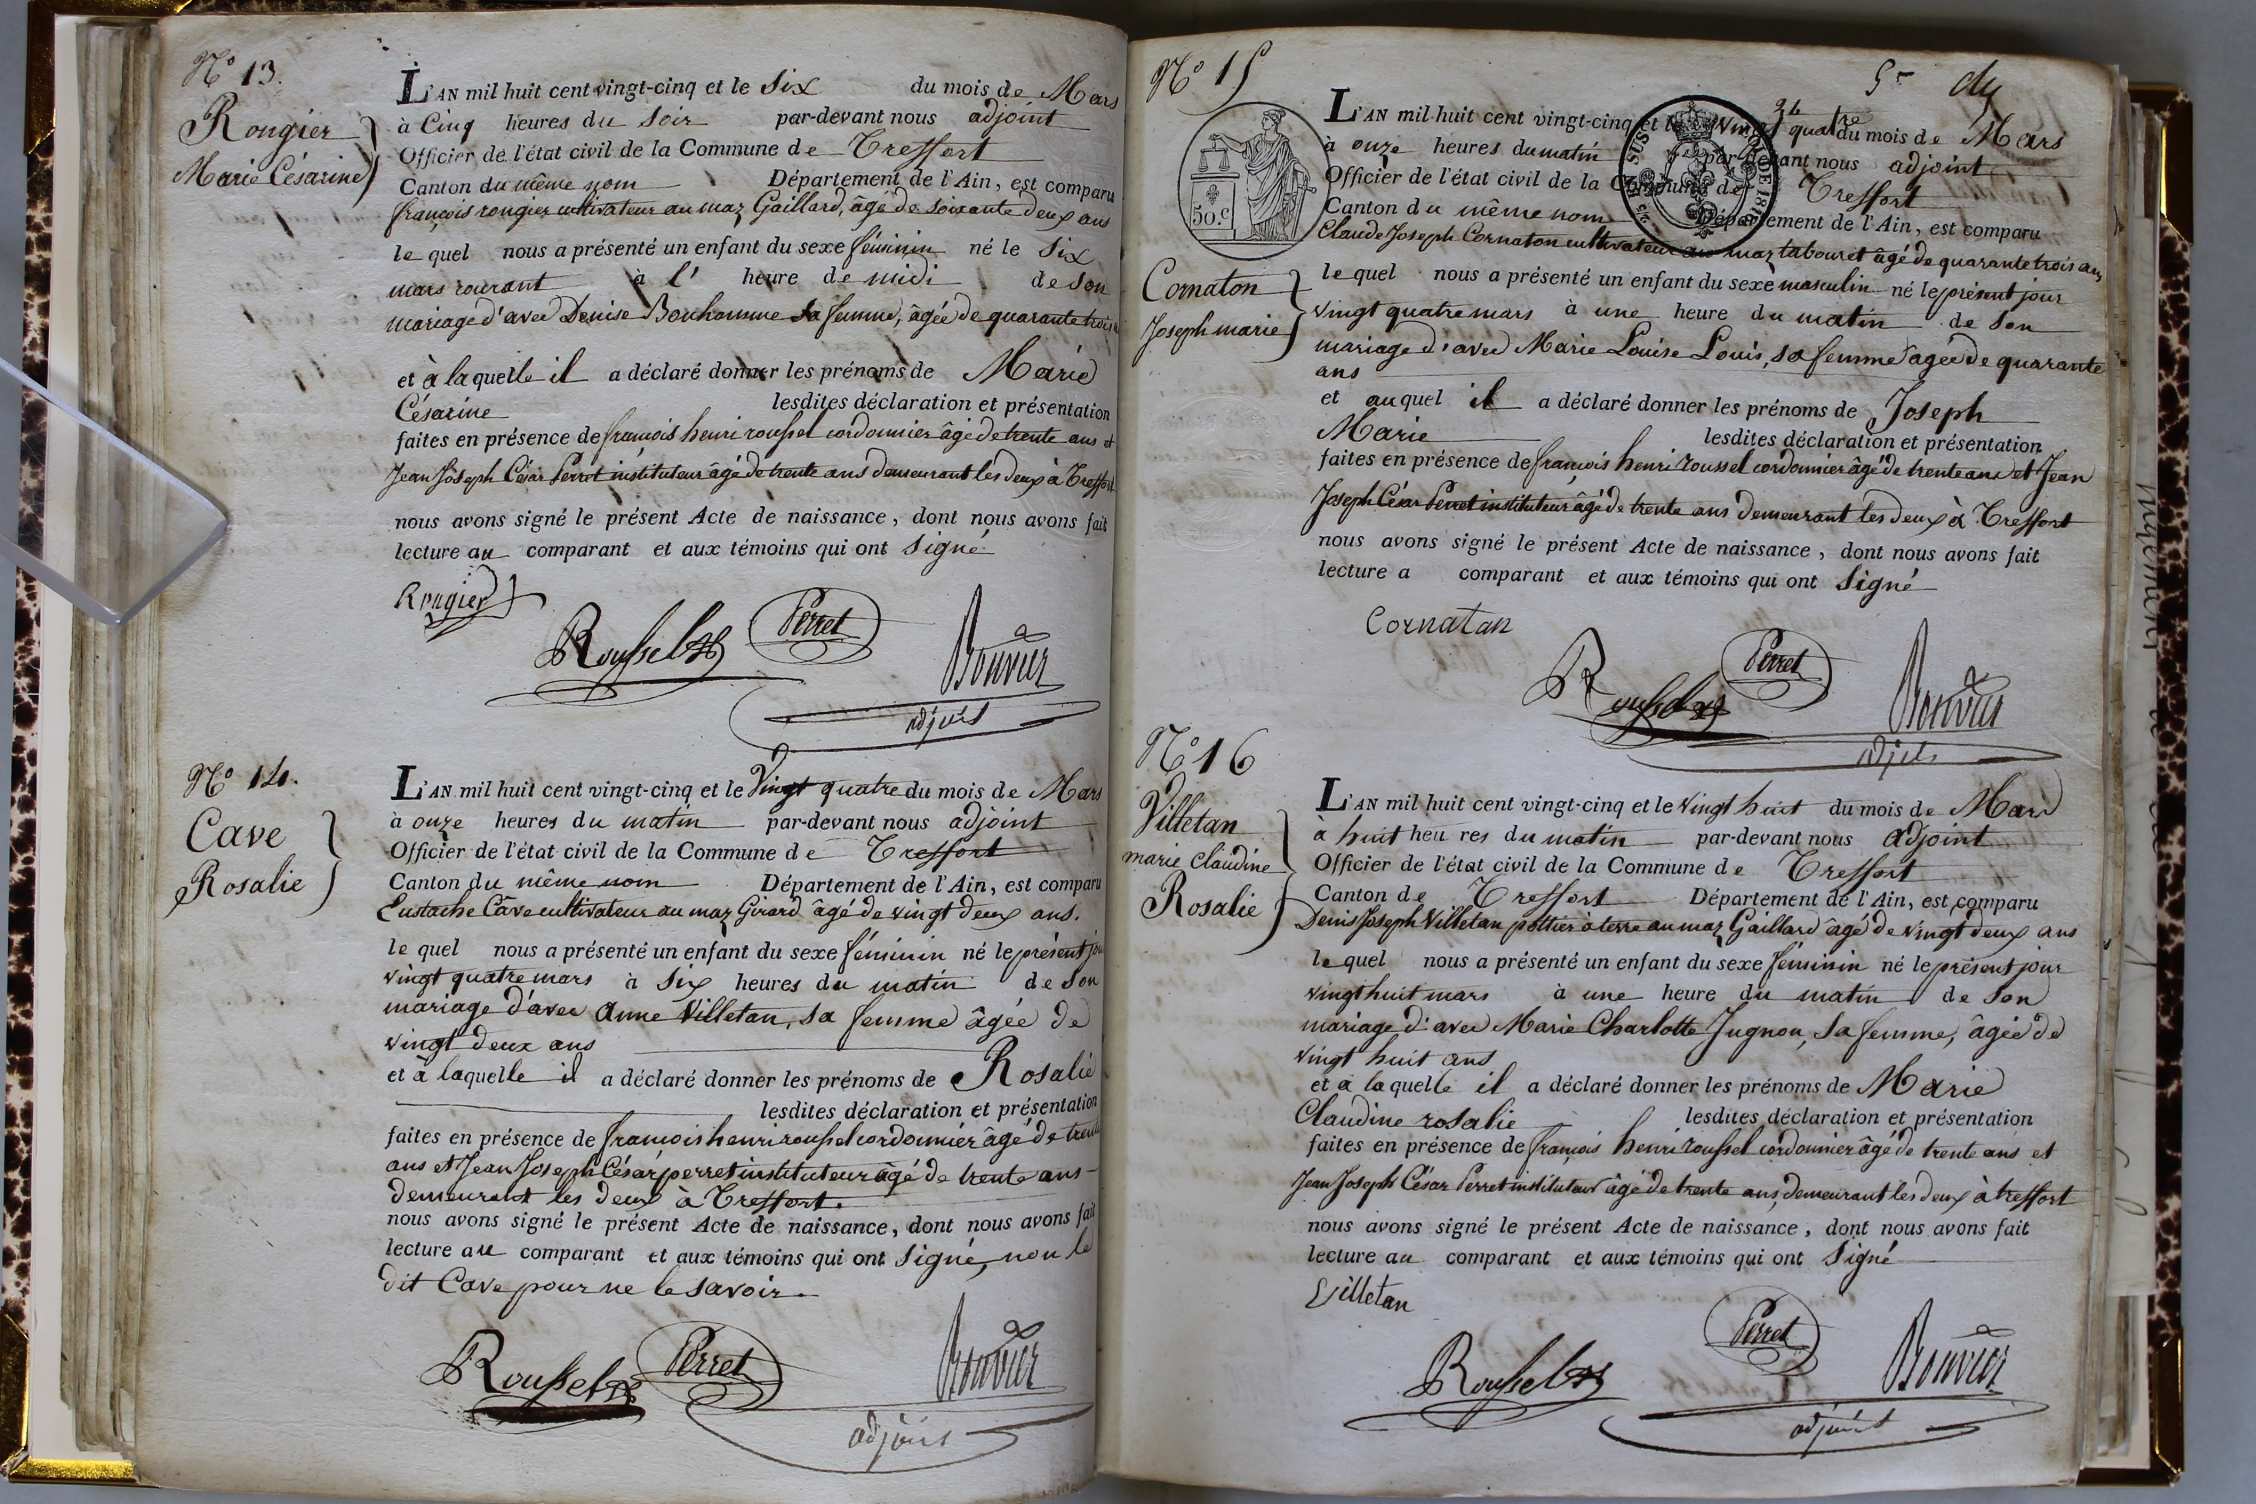 N° 13.
Rongier
Marie Césarine
L'AN mil huit cent vingt-cinq et le Six du mois de Mars
à Cinq heures du Soir par-devant nous adjoint
Officier de l'état civil de la Commune de Treffort
Canton du même nom Département de l'Ain, est comparu
françois rongier cultivateur au maz Gaillard, âgé de soixante deux ans
le quel nous a présenté un enfant du sexe féminin né le Six
mars courant à l' heure de midi de son
mariage d'avec Denise Bonhomme sa femme, âgée de quarante trois
et à laquelle il a déclaré donner les prénoms de Marie
Césarine lesdites déclaration et présentation
faites en présence de françois henri roussel cordonnier âgé de trente ans et
Jean Joseph César Perret instituteur âgé de trente ans demeurant les deux à Treffort
nous avons signé le présent Acte de naissance, dont nous avons fait
lecture au comparant et aux témoins qui ont Signé
Rongier
Roussel Perret Bouvier
adjoint
N° 14.
Cave
Rosalie
L'AN mil huit cent vingt-cinq et le Vingt quatre du mois de Mars
à onze heures du matin par-devant nous adjoint
Officier de l'état civil de la Commune de Treffort
Canton du même nom Département de l'Ain, est comparu
Eustache Câve cultivateur au maz Girard âgé de vingt deux ans.
le quel nous a présenté un enfant du sexe féminin né le présent jour
vingt quatre mars à Six heures du matin de son
mariage d'avec Anne Villetan, sa femme âgée de
vingt deux ans
et à laquelle il a déclaré donner les prénoms de Rosalie
lesdites déclaration et présentation
faites en présence de françois henri roussel cordonnier âgé de trente
ans et Jean Joseph César perret instituteur âgé de trente ans
demeurant les deux à Treffort.
nous avons signé le présent Acte de naissance, dont nous avons fait
lecture au comparant et aux témoins qui ont Signé, non le
dit Cave pour ne le savoir.
Roussel Perret Bouvier
adjoint
N° 15
5r
50.c
EN SUS
DE 1816
Cornaton
Joseph marie
L'AN mil huit cent vingt-cinq et le vingt quatre du mois de Mars
24
à onze heures du matin par-devant nous adjoint
Officier de l'état civil de la Commune de Treffort
Canton du même nom Département de l'Ain, est comparu
Claude Joseph Cornaton cultivateur au maz tabouret âgé de quarante trois ans
le quel nous a présenté un enfant du sexe masculin né le présent jour
vingt quatre mars à une heure du matin de son
mariage d'avec Marie Louise Louis, sa femme âgée de quarante
ans
et auquel il a déclaré donner les prénoms de Joseph
Marie lesdites déclaration et présentation
faites en présence de françois henri roussel cordonnier âgé de trente ans et Jean
Joseph César Perret instituteur âgé de trente ans demeurant les deux à Treffort
nous avons signé le présent Acte de naissance, dont nous avons fait
lecture a comparant et aux témoins qui ont Signé
Cornatan
Roussel Perret Bouvier
adjoint
N° 16
Villetan
marie Claudine
Rosalie
L'AN mil huit cent vingt-cinq et le vingt huit du mois de Mars
à huit heures du matin par-devant nous adjoint
Officier de l'état civil de la Commune de Treffort
Canton de Treffort Département de l'Ain, est comparu
Denis Joseph Villetan pottier à terre au maz Gaillard âgé de vingt deux ans
le quel nous a présenté un enfant du sexe féminin né le présent jour
vingt huit mars à une heure du matin de son
mariage d'avec Marie Charlotte Jugnon, sa femme, âgée de
vingt huit ans
et à laquelle il a déclaré donner les prénoms de Marie
Claudine rosalie lesdites déclaration et présentation
faites en présence de françois henri roussel cordonnier âgé de trente ans et
Jean Joseph César Perret instituteur âgé de trente ans, demeurant les deux à treffort
nous avons signé le présent Acte de naissance, dont nous avons fait
lecture au comparant et aux témoins qui ont Signé
Villetan
Roussel Perret Bouvier
adjoint